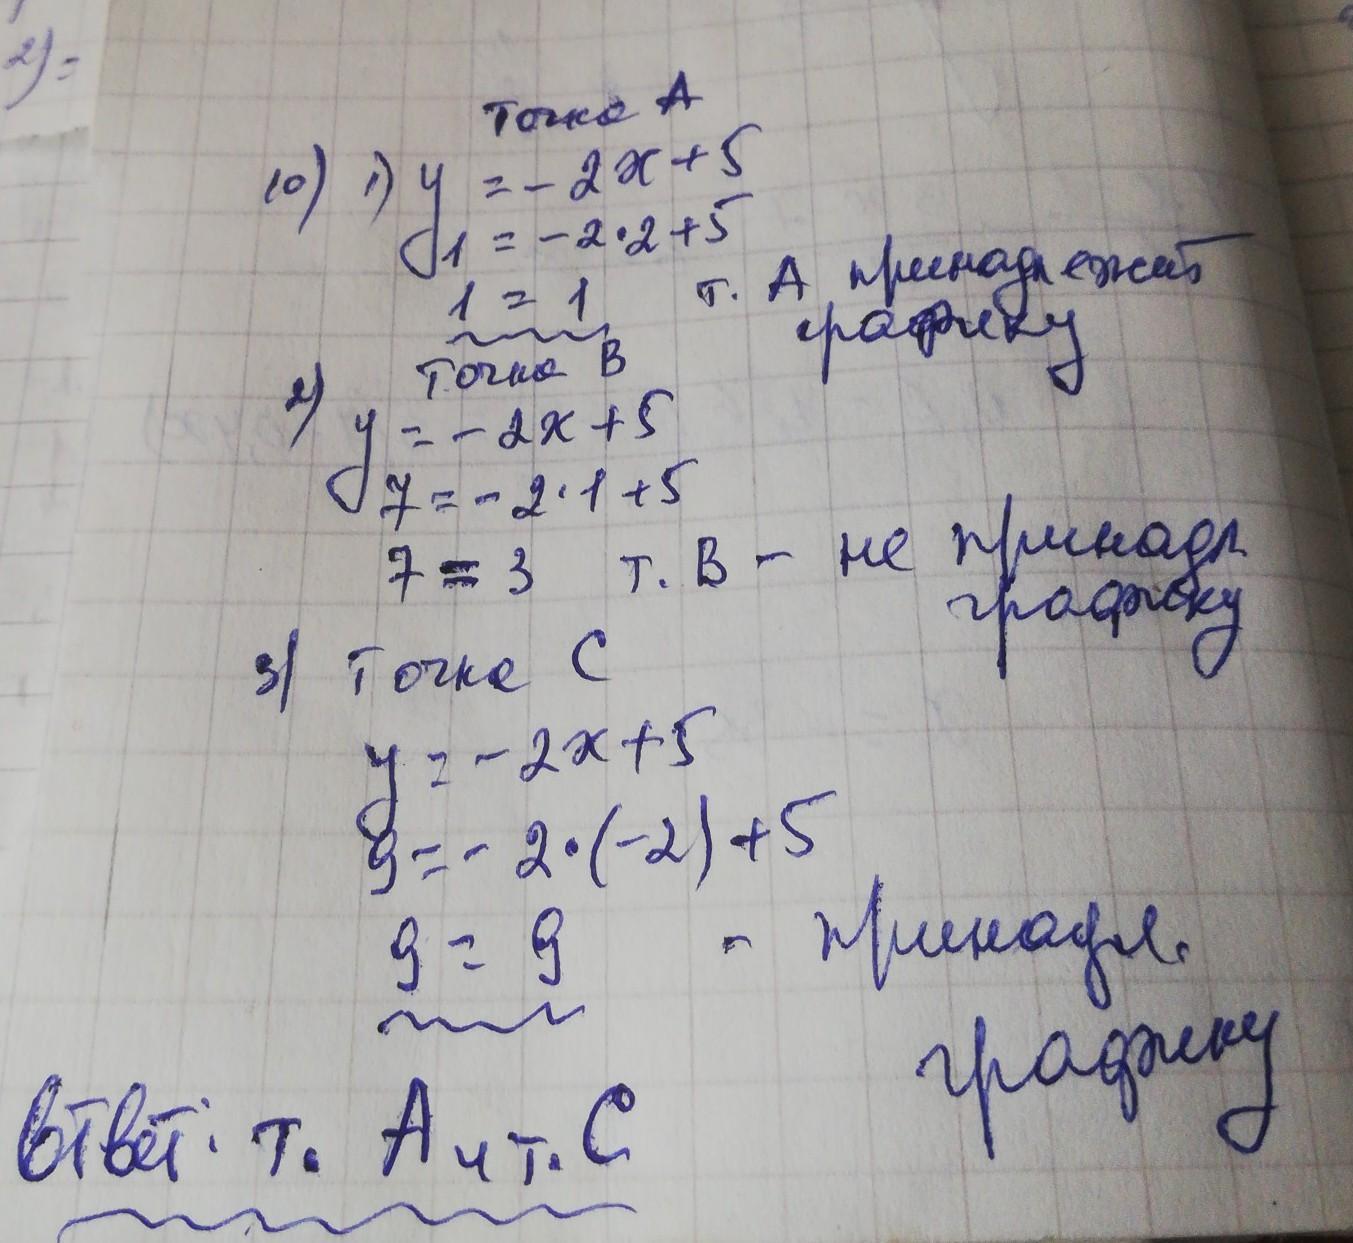 2) =
Точка А
10) 1) y = - 2x + 5
1 = - 2 · 2 + 5
1 = 1 т. А принадлежит
графику
Точка В
2)
y = - 2x + 5
7 = - 2 · 1 + 5
7 = 3 т. В - не принадл
графику
3) Точка С
y = - 2x + 5
9 = - 2 · (-2) + 5
9 = 9 - принадл.
графику
Ответ: т. А и т. С